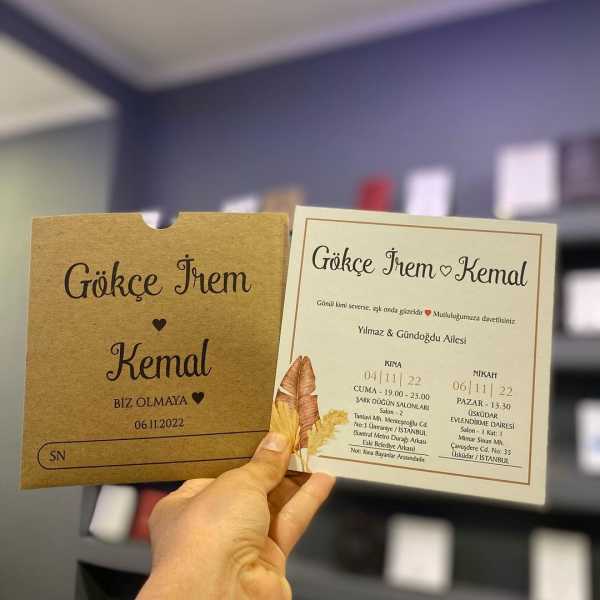 Gökçe İrem
Kemal
BİZ OLMAYA
06.11.2022
SN
Gökçe İrem Kemal
Gönül kimi severse, aşk onda güzeldir Mutluluğumuza davetlisiniz
Yılmaz & Gündoğdu Ailesi
KINA
04|11| 22
CUMA - 19.00 - 23.00
ŞARK DÜĞÜN SALONLARI
Salon - 2
Tantavi Mh. Menteşoğlu Cd.
No:5 Ümraniye / İSTANBUL
Metro Durağı Arkası
Eski Belediye Arkası
Not: Kına Bayanlar Arasındadır.
NİKAH
06|11| 22
PAZAR - 13.30
ÜSKÜDAR
EVLENDİRME DAİRESİ
Salon - 1 Kat: 1
Mimar Sinan Mh.
Çavuşdere Cd. No: 35
Üsküdar / İSTANBUL